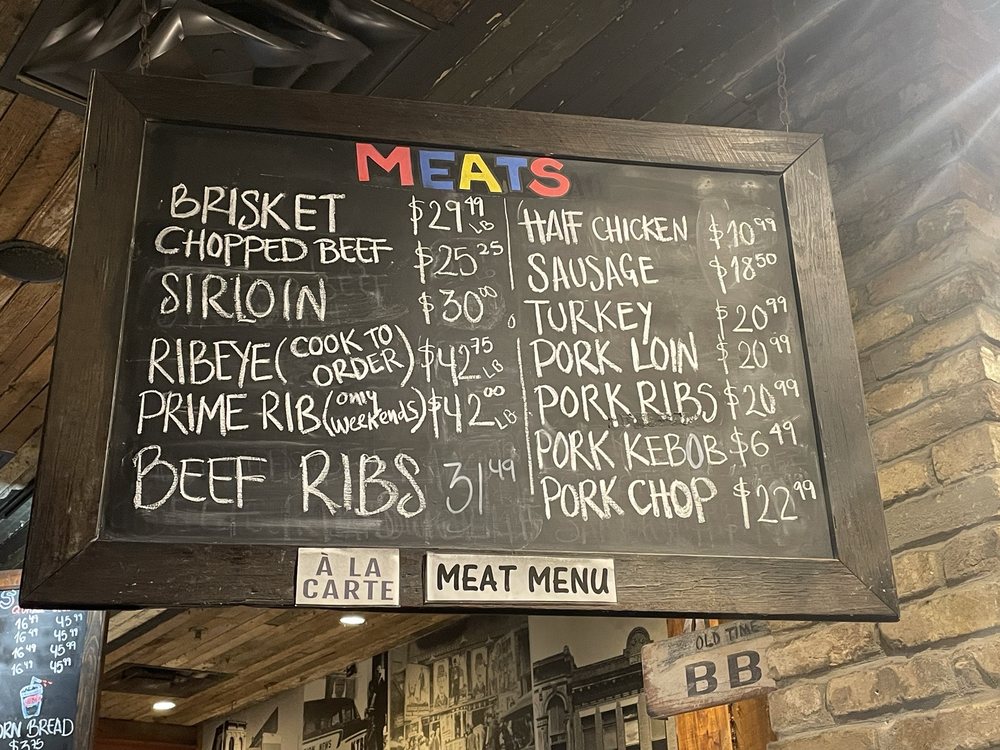 MEATS
BRISKET $29.49 LB
CHOPPED BEEF $25.25
SIRLOIN $30.00
RIBEYE (COOK TO ORDER) $42.75 LB
PRIME RIB (only weekends) $42.00 LB
BEEF RIBS 31.49
HALF CHICKEN $10.99
SAUSAGE $18.50
TURKEY $20.99
PORK LOIN $20.99
PORK RIBS $20.99
PORK KEBOB $6.49
PORK CHOP $22.99
À LA CARTE
MEAT MENU
OLD TIME
BB
16.49 45.99
16.49 45.99
16.49 45.99
16.49 45.99
BREAD
$3.75